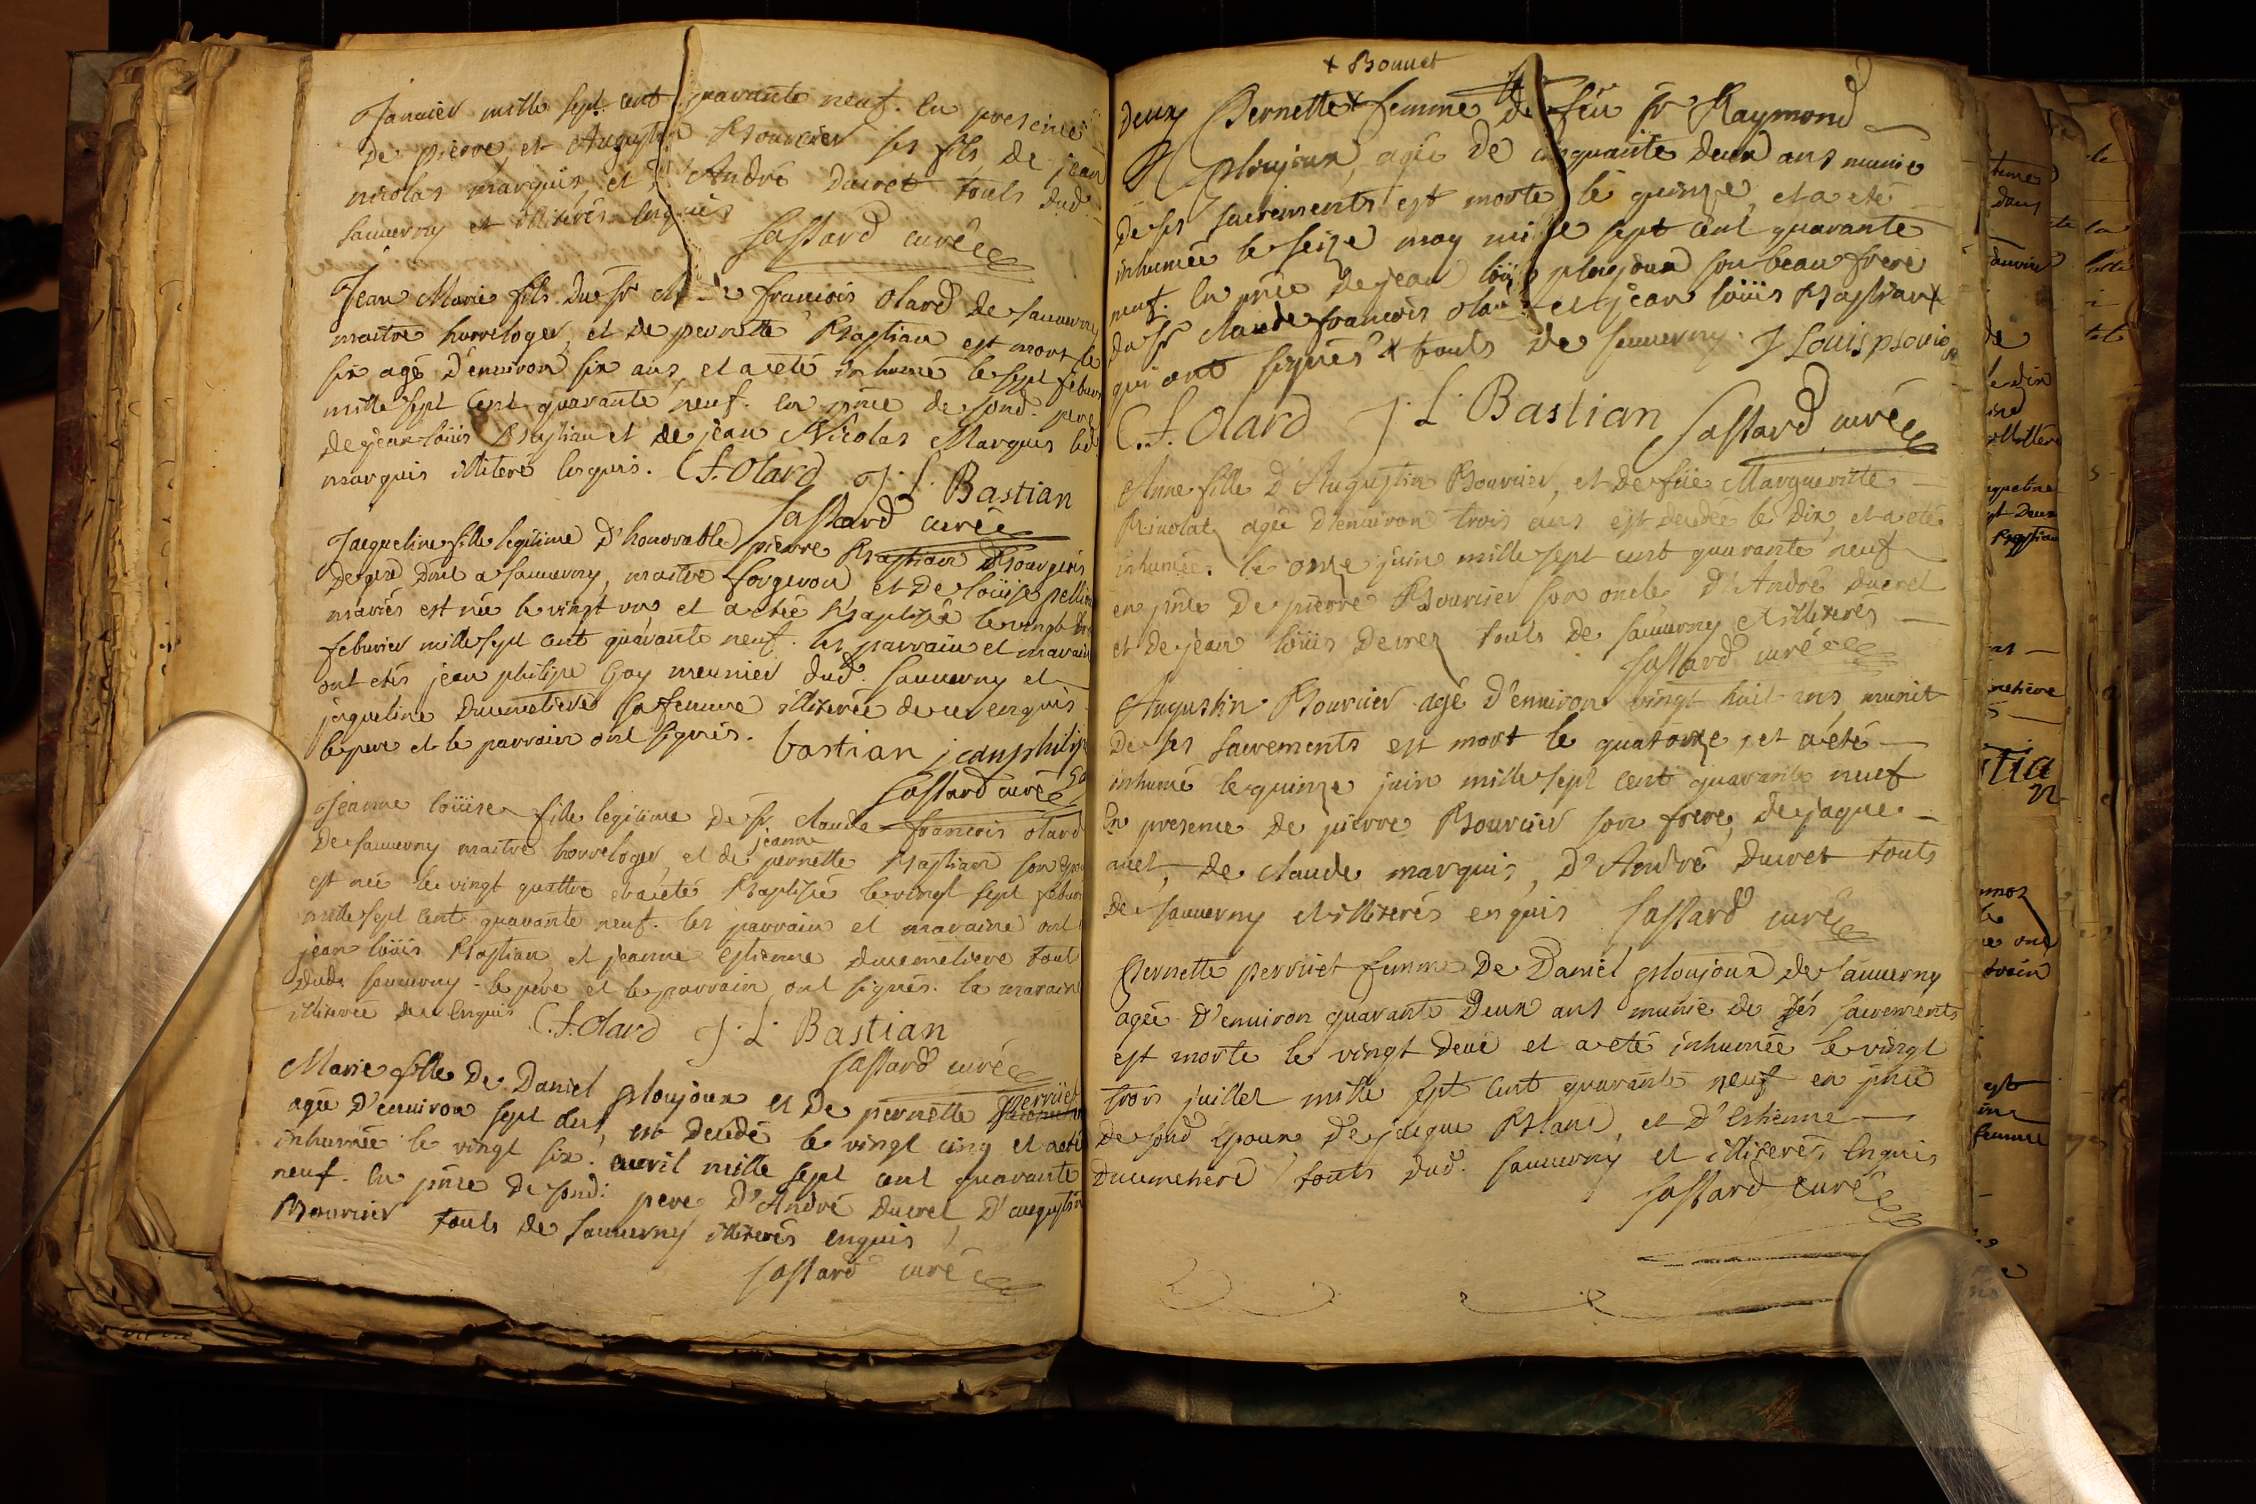 Janvier mille sept cent quarante neuf. En presence
de pierre, et Augustin Bouvier ses fils de jean
nicolas marquis, et d'André Ducret touts dud.
sauverny et illiterés enquis
Lassard curé
Jean Marie fils du sr claude francois olard de sauverny
maitre horreloger, et de pernette Bastian est mort le
six agé d'environ six ans et a eté inhumé le sept febvrier
mille sept cent quarante neuf. en pnce de sond. pere
de jean loüis Bastian et de jean Nicolas Marquis led.
marquis illiteré enquis. C. f. Olard J. L. Bastian
Lassard curé
Jacqueline fille legitime d'honorable pierre Bastian Bourgeois
de gex dmt a sauverny, maitre forgeron et de loüise pellin
mariés est née le vingt un et a eté Baptisée le vingt
febvrier mille sept cent quarante neuf. les parrain et maraine
ont etés jean philipe Gay meunier dud. sauverny et
jaqueline Ducimetiere sa femme illiterée de ce enquis
le pere et le parrain ont signés. bastian jean philipe
Lassard curé
Jeanne loüise fille legitime de sr claude francois olard
de sauverny maitre horreloger, et de pernette Bastian son
jeanne
est née le vingt quattre et a eté Baptisée le vingt sept febvrier
mille sept cent quarante neuf. les parrain et maraine ont
jean loüis Bastian et jeanne Estienne Ducimetiere tout
dud. sauverny - le pere et le parrain ont signés. la maraine
illiterée de ce enquis C. f. Olard J. L. Bastian
Lassard curé
Marie fille de Daniel ploujoux et de pernette perruet
agée d'environ sept ans, est decedé le vingt cinq et a eté
inhumée le vingt six. avril mille sept cent quarante
neuf. En pnce de sond: pere D'André Ducret, D'augustin
Bouvier touts de sauverny illiterés enquis
Lassard curé
+ Bonnet
deux Pernette + femme de feu sr Raymond
Ploujoux, agée de cinquante deux ans munie
de ses sacrements est morte le quinze, et a eté
inhumée le seize may mille sept cent quarante
neuf. En pnce de jean loüis ploujoux son beau frere
du sr claude francois olard et jean loüis Bastian
qui ont signés + touts de sauverny. J Louis
C. f. Olard J. L. Bastian Lassard curé
Anne fille d'Augustin Bouvier, et de feüe Marguerite
agée d'environ trois ans est decedée le dix, et a eté
inhumée. le onze juin mille sept cent quarante neuf
en pnce de pierre Bouvier son oncle d'André Ducret
et de jean loüis touts de sauverny et illiterés
Lassard curé
Augustin Bouvier agé d'environ vingt huit ans, munit
de ses sacrements est mort le quatorze, et a eté
inhumé le quinze juin mille sept cent quarante neuf
En presence de pierre Bouvier son frere, de jaque
de claude marquis, D'André Ducret touts
de sauverny et illiterés enquis Lassard curé
Pernette perruet femme de Daniel Ploujoux de sauverny
agée d'environ quarante deux ans munie de ses sacrements
est morte le vingt deux et a eté inhumée le vingt
trois juillet mille sept cent quarante neuf en pnce
de sond Epoux de jacque Blanc, et d'Estienne
Ducimetiere touts dud. sauverny et illiterés enquis
Lassard curé